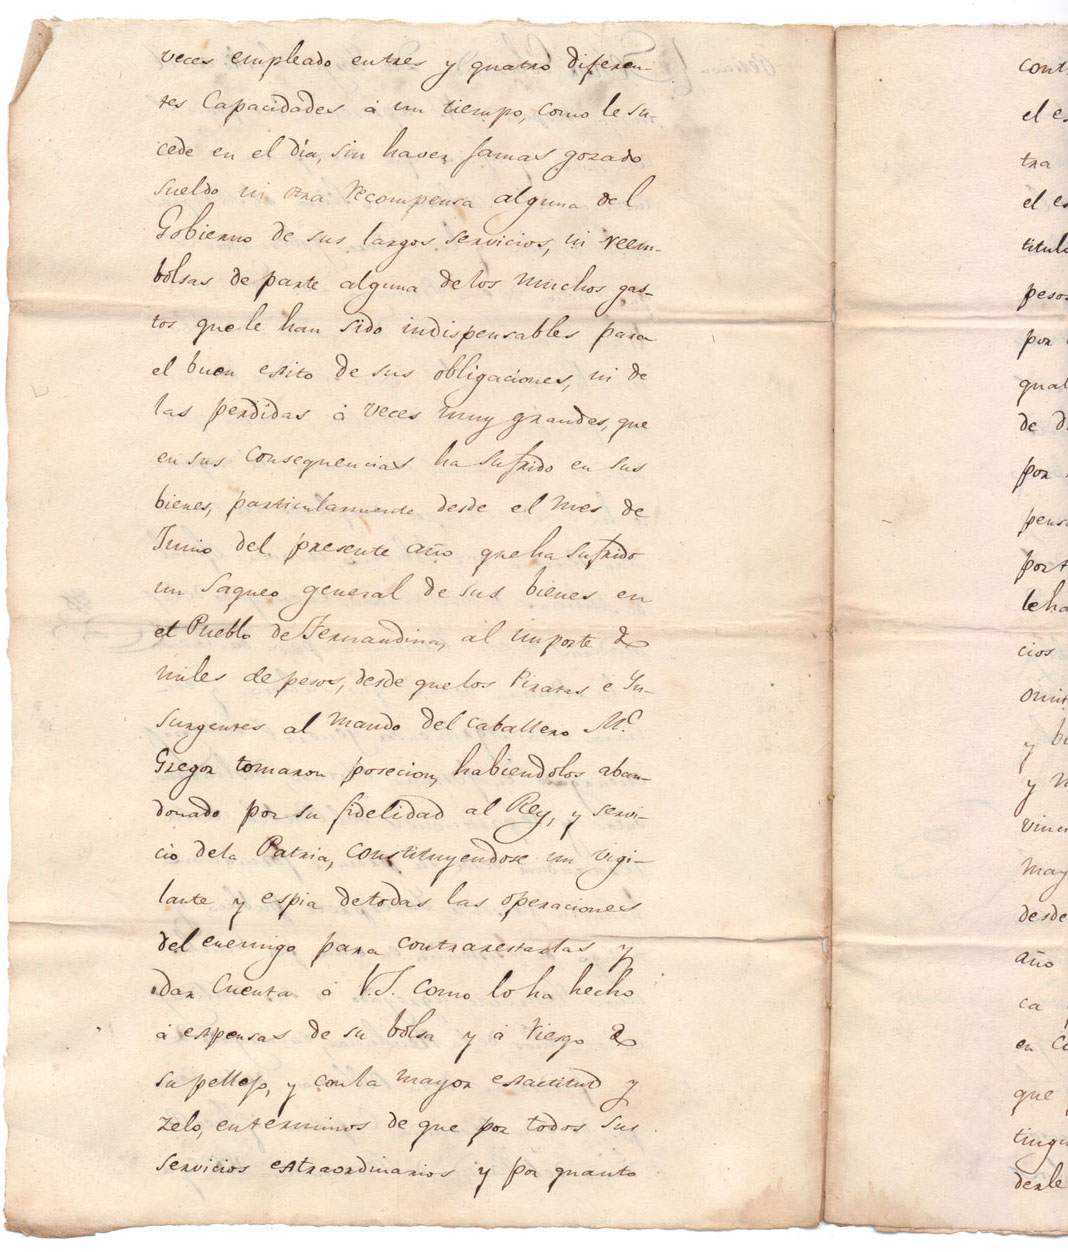 veces empleado entres y quatro diferen-
tes Capacidades á un tiempo, como le su-
cede en el día, sin haver jamas gozado
sueldo ni otra recompensa alguna del
Gobierno de sus largos servicios, ni reem-
bolsas de parte alguna delos muchos gas-
tos que le han sido indispensables para
el buen esito de sus obligaciones, ni de
las perdidas á veces muy grandes, que
en sus consequencias ha sufrido en sus
bienes, particularmente desde el mes de
Junio del presente año que ha sufrido
un saqueo general de sus bienes en
el Pueblo de Fernandina, al importe de
miles de pesos, desde que los Piratas e In-
surgentes al mando del caballero Mc.
Gregor tomaron posecion, habiendolos aban-
donado por su fidelidad al Rey, y servi-
cio dela Patria, constituyendose un vigi-
lante y espia detodas las operaciones
del enemigo para contrarestarlas y
dar Cuenta á V.S. como lo ha hecho
á espensas de su bolsa y á riesgo de
su pellejo, y conla mayor esactitud y
zelo, enterminos de que por todos sus
servicios estraordinarios y por quanto
cont
el es
tra
el es
titulo
pesos
por
qual
de d
por
pens
port
le ha
cios
omit
y b
y m
vinc
may
desde
año
ca
en C
que
tingu
derle